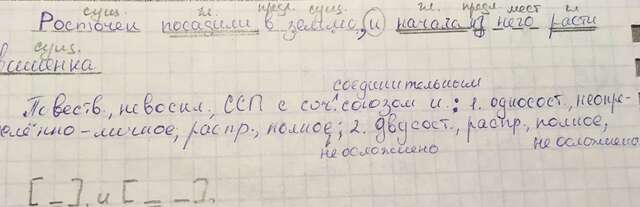 сущ. гл. предл. сущ. гл. предл. мест гл
Росточек посадили в землю, и начала из него расти
сущ.
вишенка
соединительным
Повеств., невоскл., ССП с соч. союзом и : 1. односост., неопре-
делённо-личное, распр., полное; 2. двусост., распр., полное,
не осложнено не осложнено
[_], и [_ _].